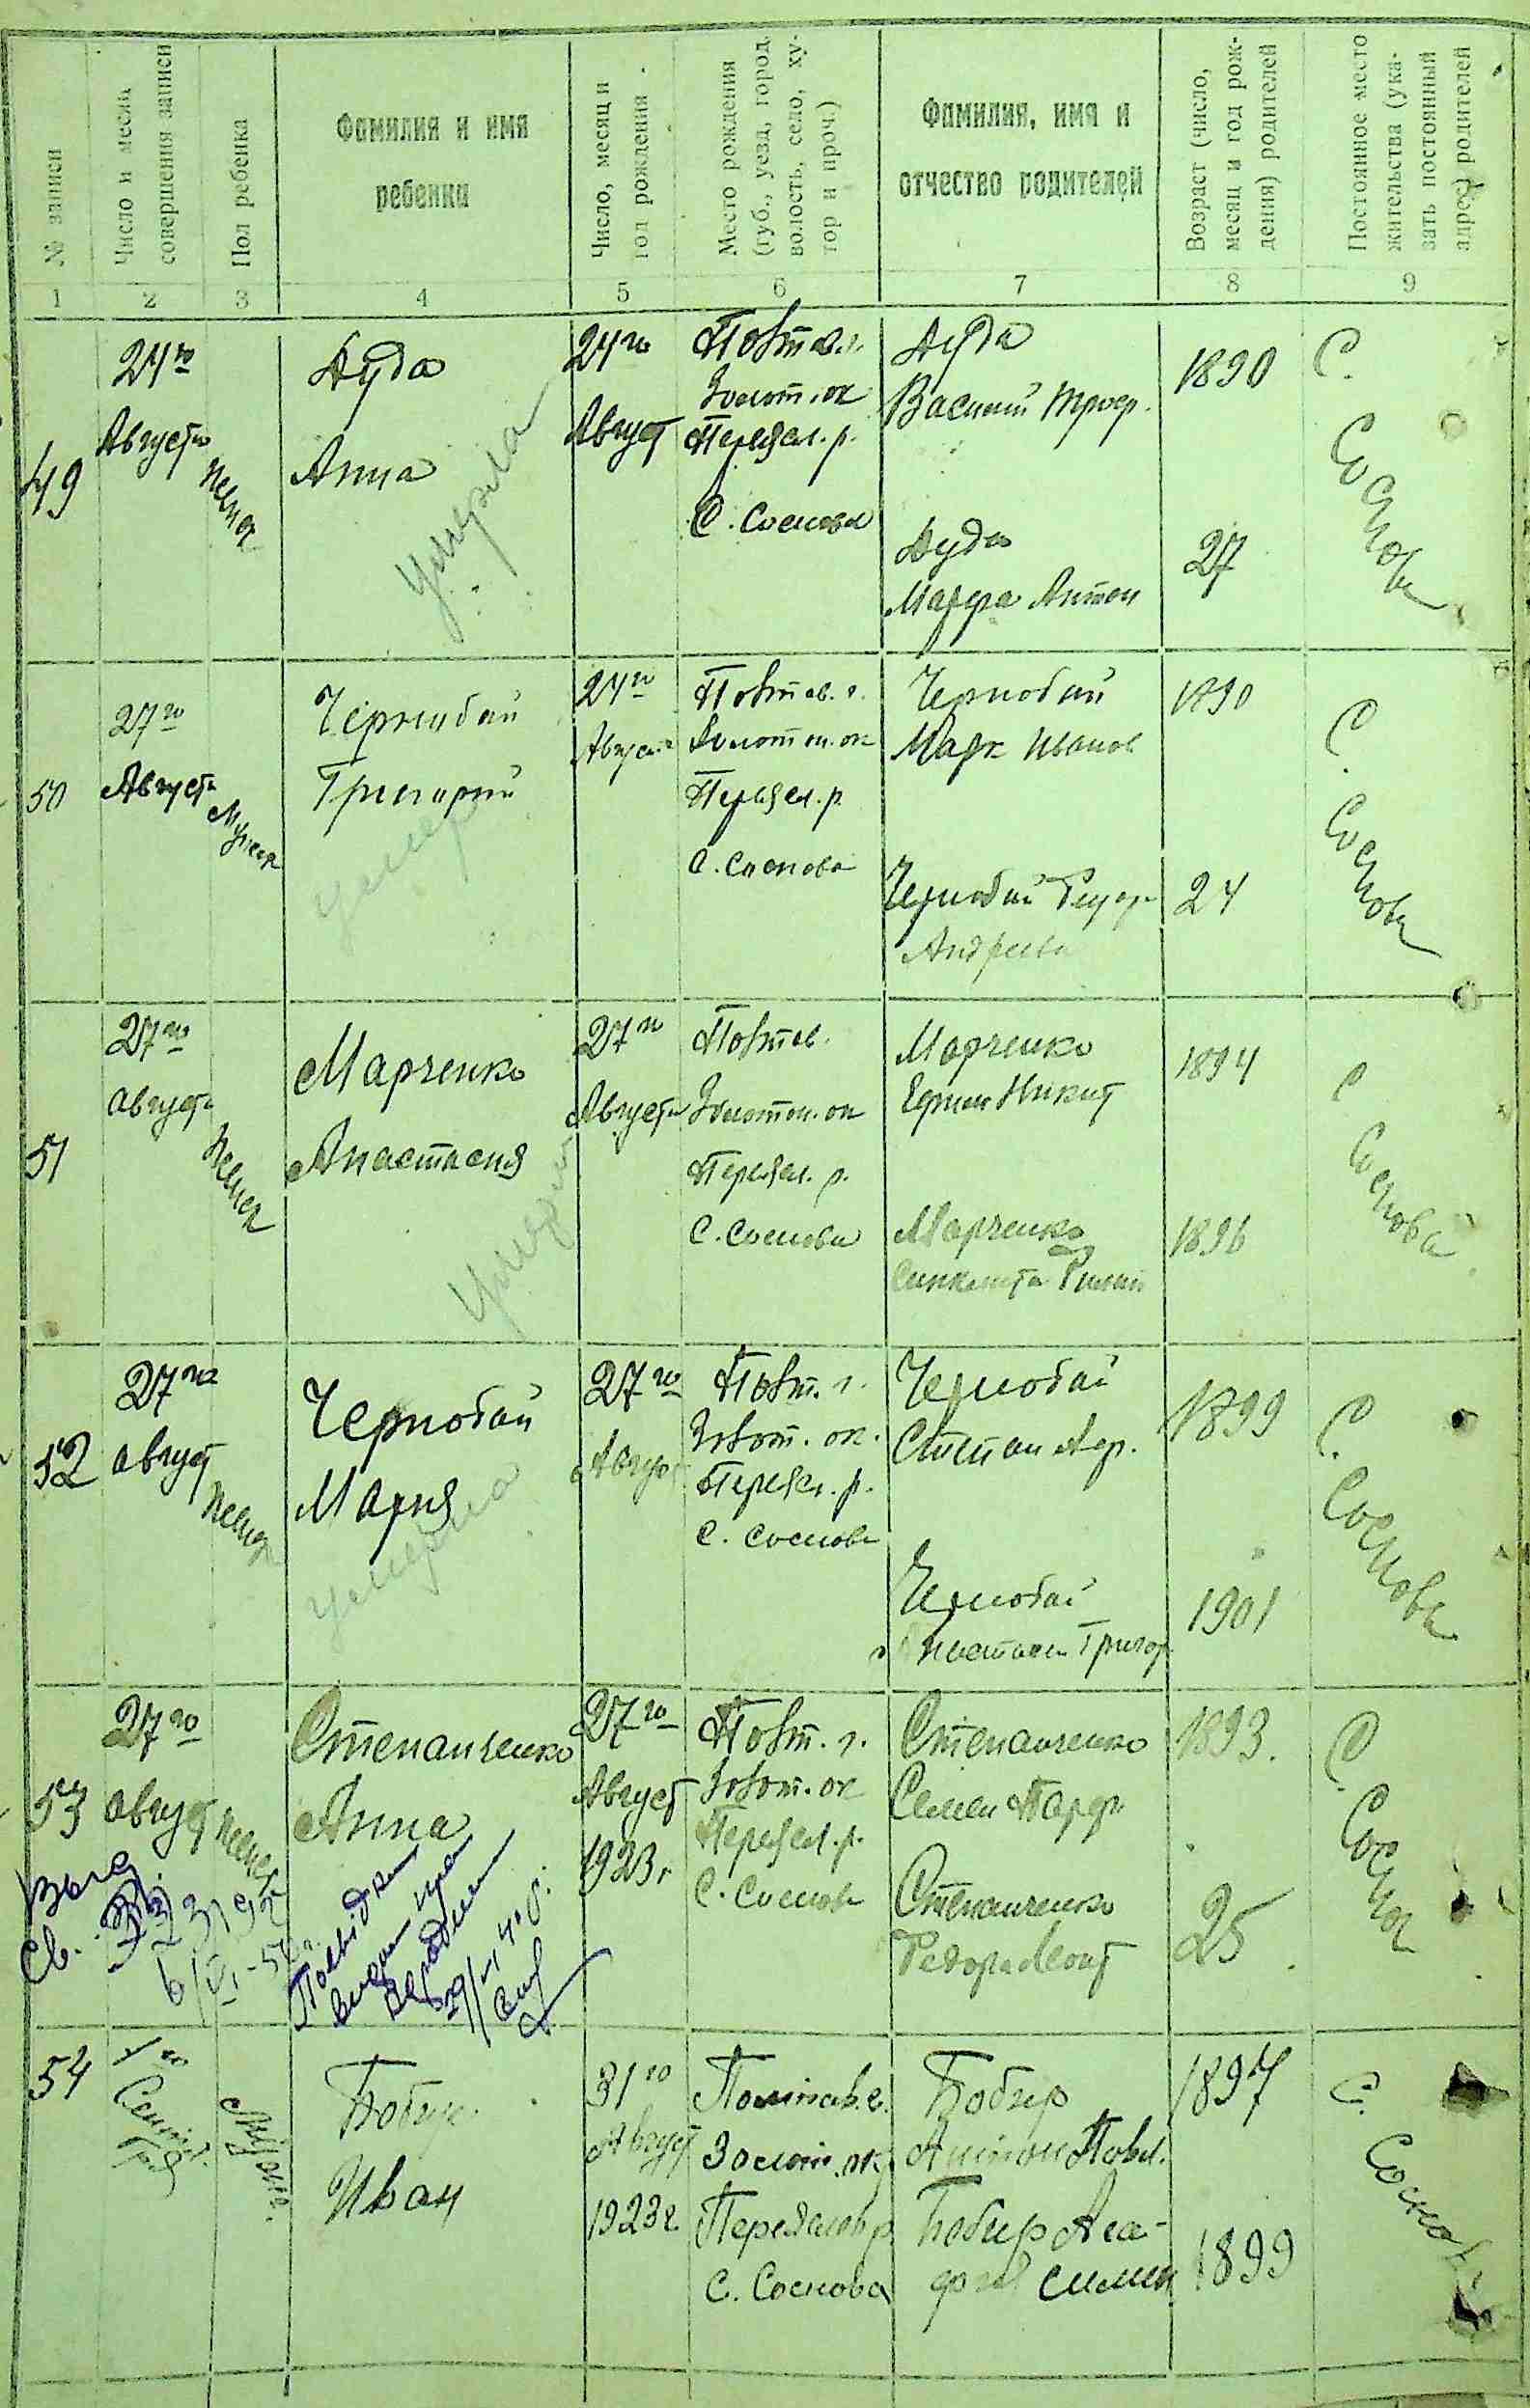 № записи
Число и месяц
совершения записи
Пол ребенка
Фамилия и имя
ребенка
Число, месяц и
год рождения
Место рождения
(губ., уезд, город,
волость, село, ху-
тор и проч.)
Фамилия, имя и
отчество родителей
Возраст (число,
месяц и год рож-
дения) родителей
Постоянное место
жительства (ука-
зать постоянный
адрес) родителей
1 2 3 4 5 6 7 8 9
49
24го
Августа
женск
Дуда
Анна
умерла
24го
Август
Полтав.
Золот. ок
Переясл. р.
С. Соснова
Дуда
Василий
Дуда
Марфа Антон
1890
27
С.
Соснова
50
27го
Августа
Мужск
Чернобай
Григорий
умер
24го
Августа
Полтав. г.
Золотон. ок
Переясл. р
С. Соснова
Чернобай
Марк Иванов
Чернобай
Андреева
1890
24
С.
Соснова
51
27го
Августа
женск
Марченко
Анастасия
умерла
27го
Августа
Полтав.
Золотон. ок
Переясл. р.
С. Соснова
Марченко
Ефим Никит
Марченко
Синклита
1894
1896
С
Соснова
52
27го
Август
женск
Чернобай
Мария
умерла
27го
Август
Полт. г.
Золот. ок.
Переясл. р.
С. Соснова
Чернобай
Степан
Чернобай
Настасья Григор
1899
1901
С.
Соснова
53
27го
Август
женск
Выд
Св.
6/VI-54 г.
Степанченко
Анна
27го
Август
1923 г
Полт. г.
Золот. ок
Переясл. р.
С. Соснова
Степанченко
Семен Парф
Степанченко
Федора Леонт
1893.
25
С.
Сосна
54
1го
Сентяб.
Мужск.
Бобир
Иван
31го
Август
1923 г
Полтав. г.
Золот. ок
Переяслов р
С. Соснова
Бобир
Антон Павл.
Бобир Ага-
фия Симен
1897
1899
С. Соснова